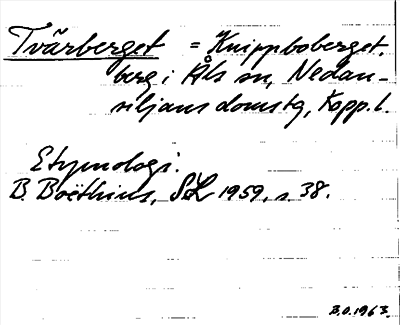 Tvärberget = Knippboberget,
berg i Åls sn, Nedan-
siljans domstg, Kopp. l.
Etymologi.
B. Boëthius, SoL 1959, s. 38.
B.O. 1963.